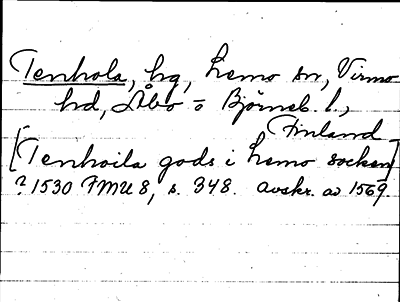 Tenhola, hg, Lemo sn, Virmo
hd, Åbo o Björneb. l.,
Finland
[Tenhoila gods i Lemo socken]
? 1530 FMU 8, s. 348. avskr. av 1569.